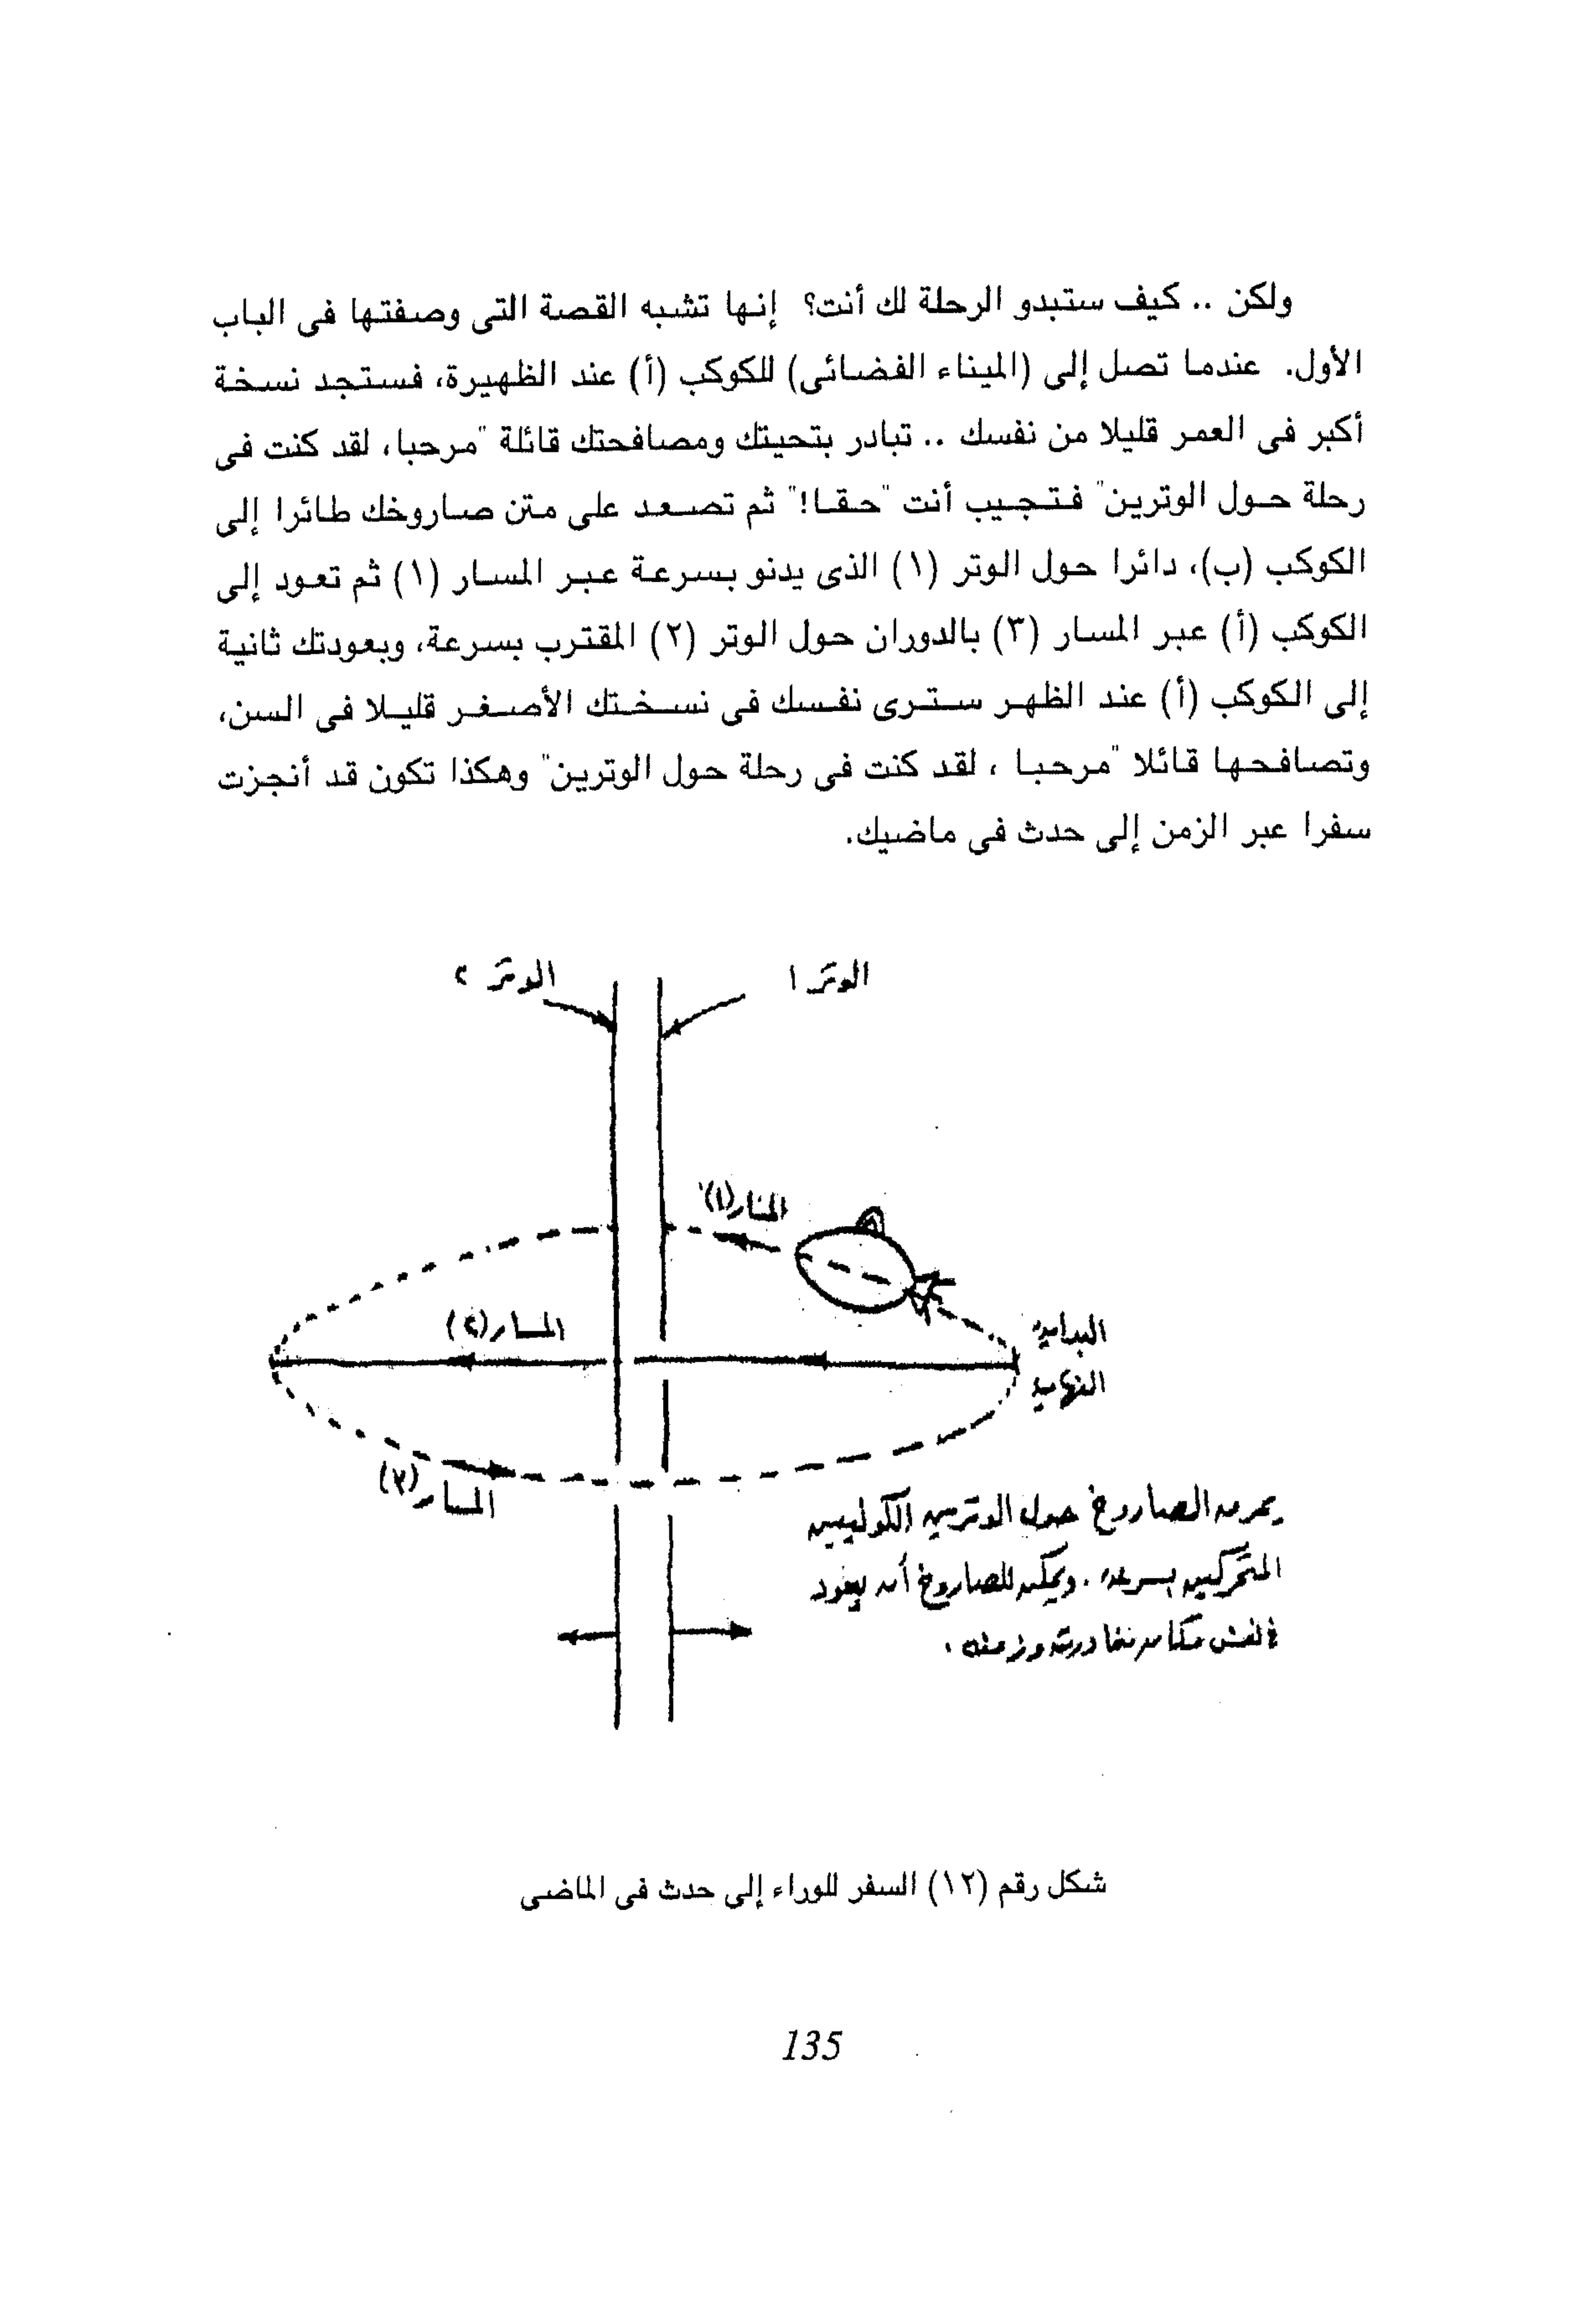 ولكن .. كيف ستبدو الرحلة لك أنت؟ إنها تشبه القصة التى وصفتها فى الباب
الأول. عندما تصل إلى (الميناء الفضائى) للكوكب (أ) عند الظهيرة، فستجد نسخة
أكبر فى العمر قليلا من نفسك .. تبادر بتحيتك ومصافحتك قائلة "مرحبا، لقد كنت فى
رحلة حول الوترين" فتجيب أنت "حقا!" ثم تصعد على متن صاروخك طائرا إلى
الكوكب (ب)، دائرا حول الوتر (١) الذى يدنو بسرعة عبر المسار (١) ثم تعود إلى
الكوكب (أ) عبر المسار (٣) بالدوران حول الوتر (٢) المقترب بسرعة، وبعودتك ثانية
إلى الكوكب (أ) عند الظهر سترى نفسك فى نسختك الأصغر قليلا فى السن،
وتصافحها قائلا "مرحبا ، لقد كنت فى رحلة حول الوترين" وهكذا تكون قد أنجزت
سفرا عبر الزمن إلى حدث فى ماضيك.
الوتر ١
الوتر ٢
المسار (١)
المسار (٢)
البداية
النهاية
المسار (٣)
يمر الصاروخ حول الوترين الكونيين
المتحركين بسرعة . ويمكن للصاروخ أن يعود
فى نفس مكان مغادرته وزمنه .
شكل رقم (١٢) السفر للوراء إلى حدث فى الماضى
135